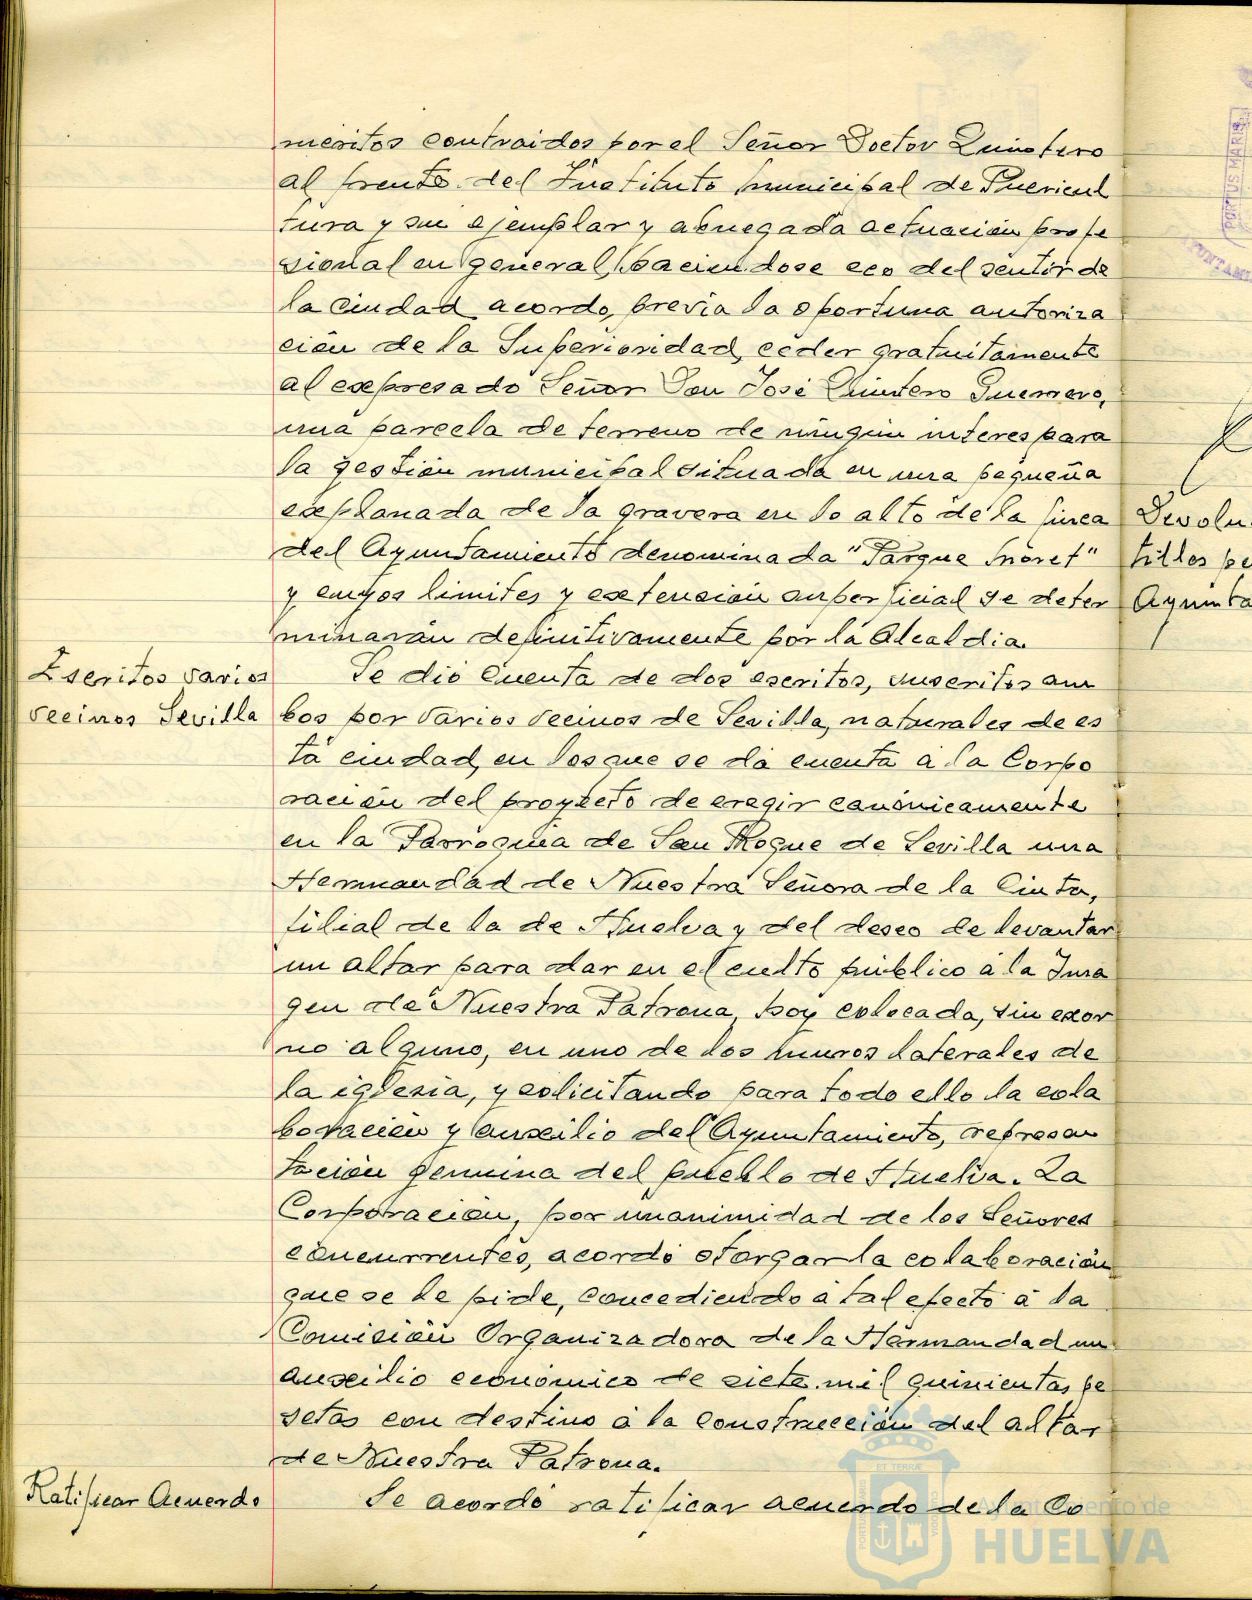 meritos contraidos por el Señor Doctor Quintero
al frente del Instituto Municipal de Puericul
tura y su ejemplar y abnegada actuación profe
sional en general, haciendose eco del sentir de
la Ciudad acordo, previa la oportuna autoriza
ción de la Superioridad, ceder gratuitamente
al expresado Señor Don José Quintero Guerrero,
una parcela de terreno de ningún interes para
la gestión municipal situada en una pequeña
explanada de la gravera en lo alto de la finca
del Ayuntamiento denominada "Parque Moret"
y cuyos limites y extensión superficial se deter
minarán definitivamente por la Alcaldia.
Escritos varios
vecinos Sevilla
Se dió Cuenta de dos escritos, suscritos am
bos por varios vecinos de Sevilla, naturales de es
ta ciudad, en los que se dá cuenta á la Corpo
ración del proyecto de eregir canónicamente
en la Parroquia de San Roque de Sevilla una
Hermandad de Nuestra Señora de la Cinta,
filial de la de Huelva y del deseo de levantar
un altar para dar en el culto público á la Ima
gen de Nuestra Patrona, hoy colocada, sin exor
no alguno, en uno de los muros laterales de
la iglesia, y solicitando para todo ello la cola
boración y auxilio del Ayuntamiento, represen
tación genuina del pueblo de Huelva. La
Corporación, por unanimidad de los Señores
concurrentes, acordó otorgar la colaboración
que se le pide, concediendo á tal efecto á la
Comisión Organizadora de la Hermandad un
auxilio económico de siete mil quinientas pe
setas con destino á la construcción del altar
de Nuestra Patrona.
Ratificar Acuerdo
Se acordó ratificar acuerdo de la Co
Devolu
tillos pe
Ayunta
Ayuntamiento de
HUELVA